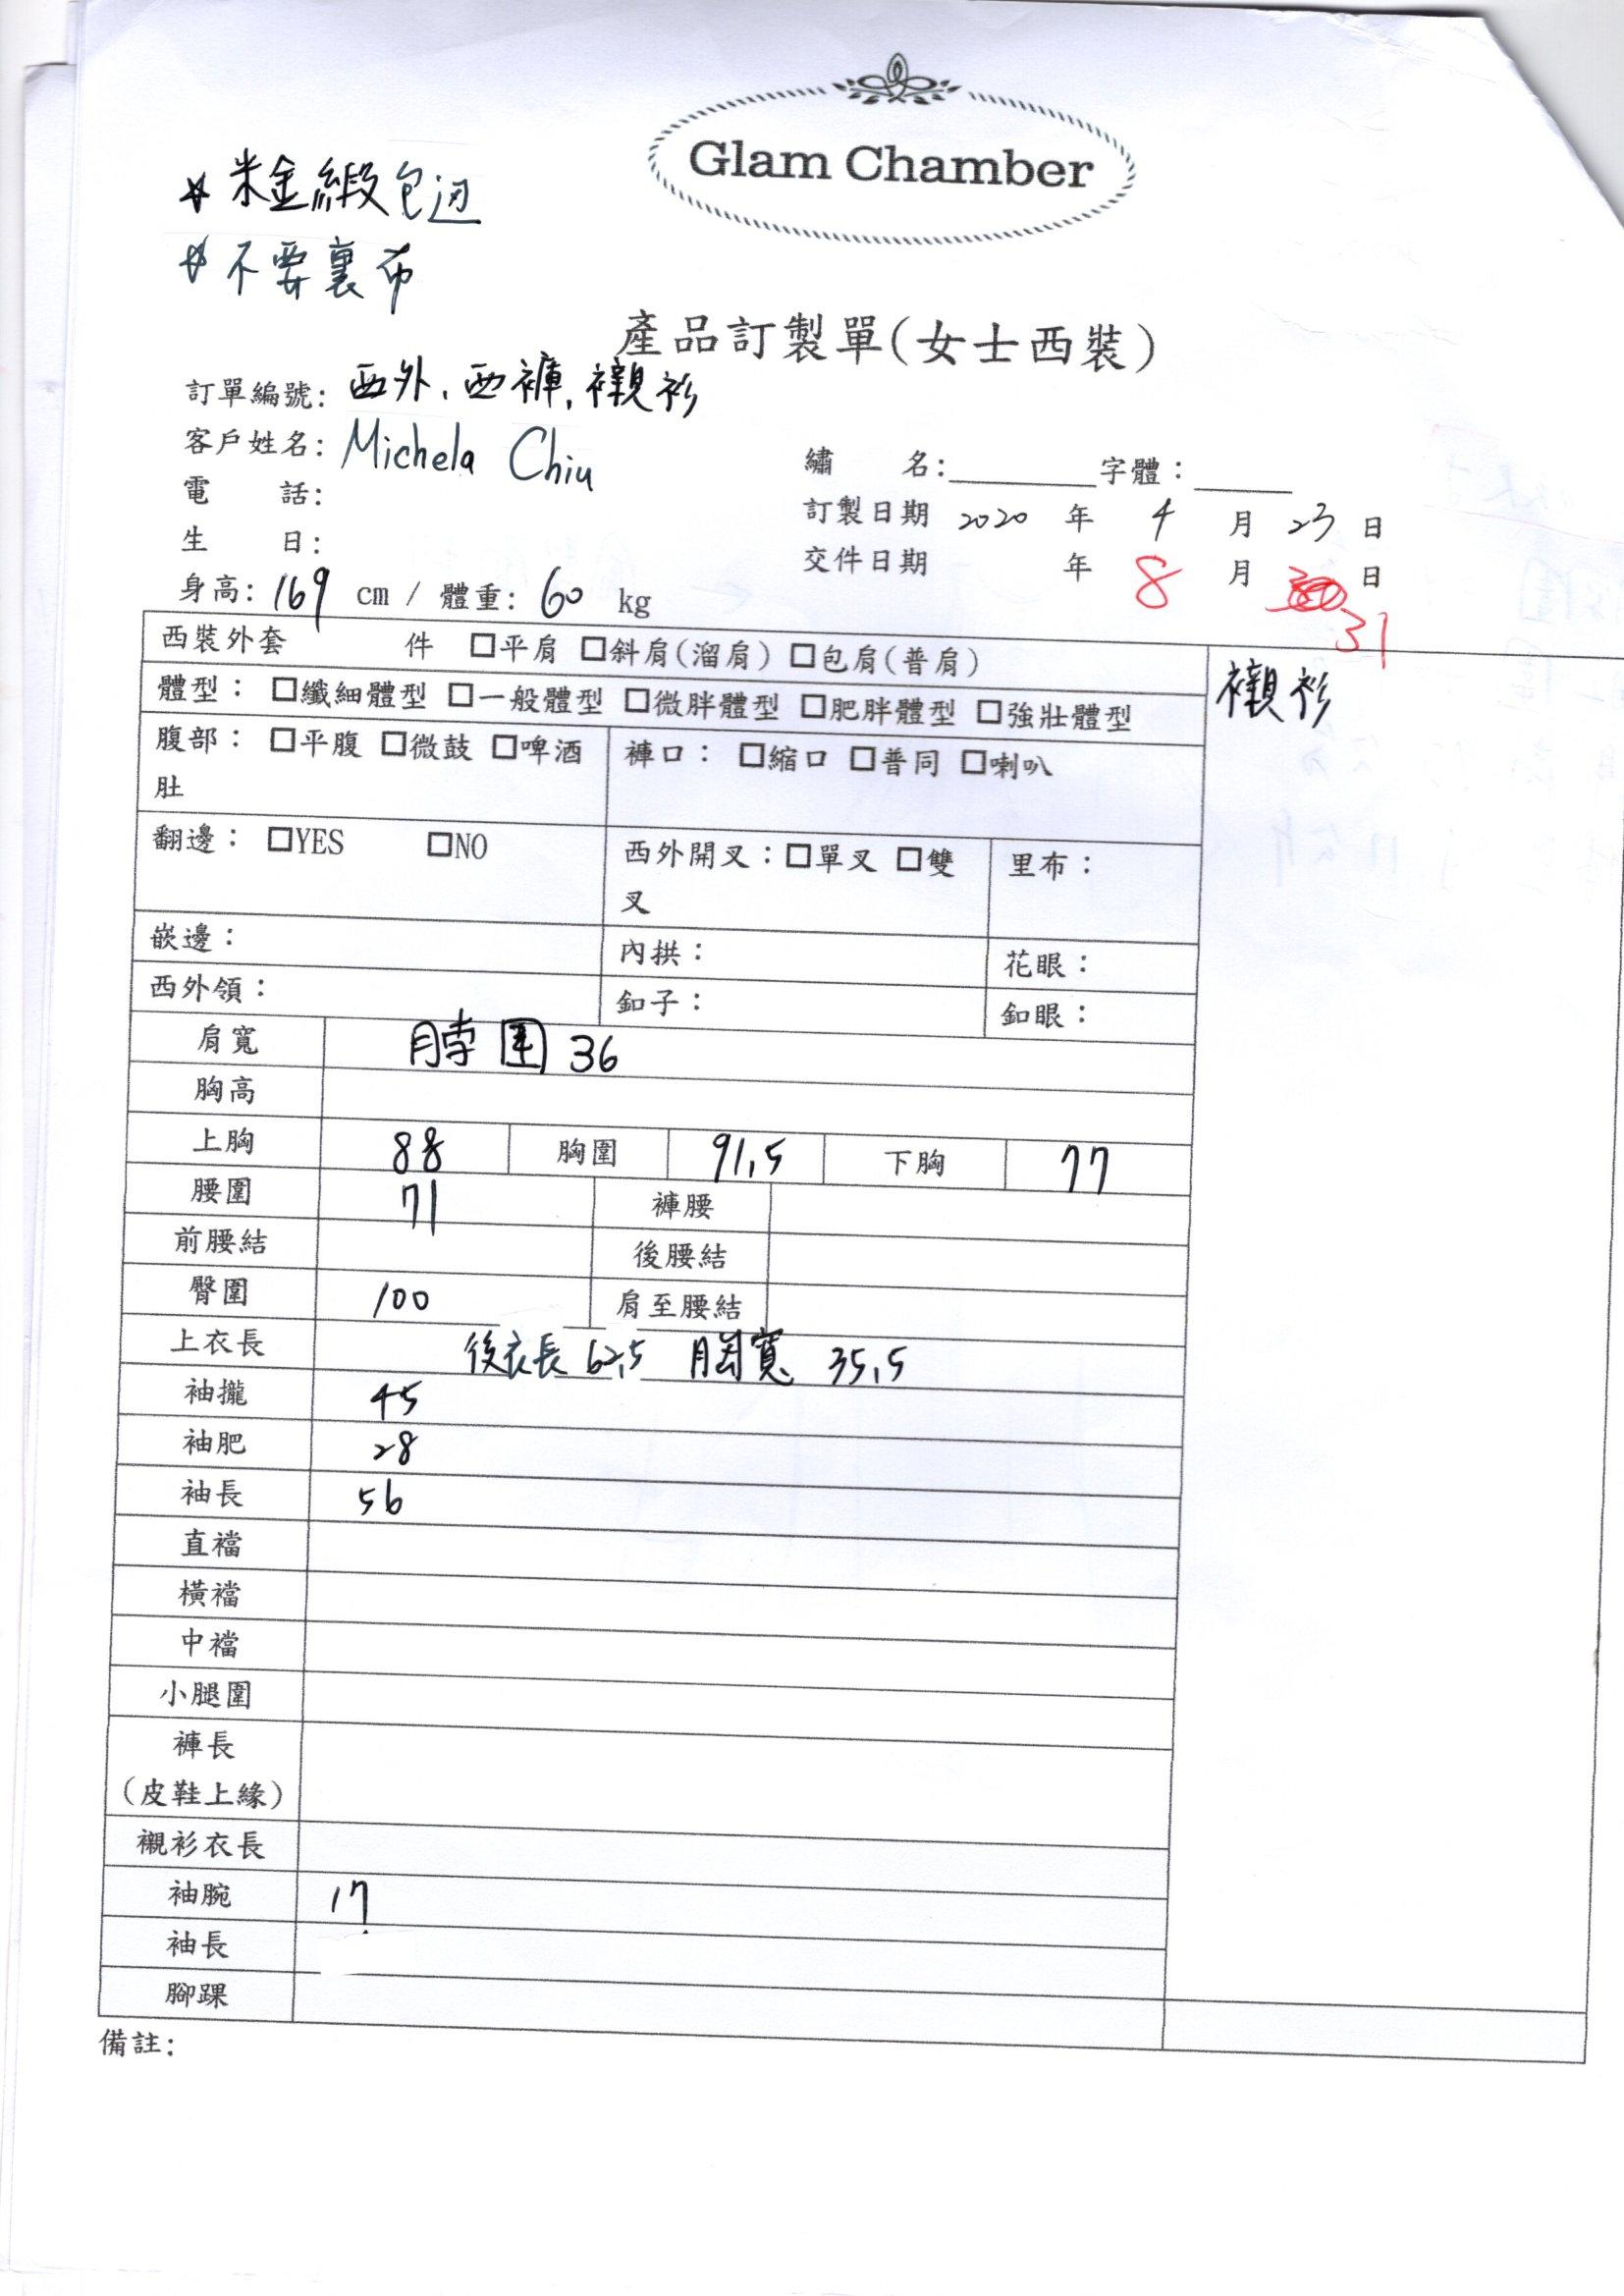 Glam Chamber
☆米金緞包边
☆不要裏布
產品訂製單(女士西裝)
訂單編號: 西外、西褲、襯衫
客戶姓名: Michela Chiu
繡 名:________字體:_____
電 話:
訂製日期 2020 年 4 月 23 日
生 日:
交件日期 年 8 月 31 日
身高: 169 cm / 體重: 60 kg
西裝外套 件 □平肩 □斜肩(溜肩) □包肩(普肩)
襯衫
體型: □纖細體型 □一般體型 □微胖體型 □肥胖體型 □強壯體型
腹部: □平腹 □微鼓 □啤酒肚 褲口: □縮口 □普同 □喇叭
翻邊: □YES □NO 西外開叉:□單叉 □雙叉 里布:
嵌邊: 內拱: 花眼:
西外領: 釦子: 釦眼:
肩寬 脖圍 36
胸高
上胸 88 胸圍 91,5 下胸 77
腰圍 71 褲腰
前腰結 後腰結
臀圍 100 肩至腰結
上衣長 後衣長 62,5 胸寬 35,5
袖攏 45
袖肥 28
袖長 56
直襠
橫襠
中襠
小腿圍
褲長
(皮鞋上緣)
襯衫衣長
袖腕 17
袖長
腳踝
備註: